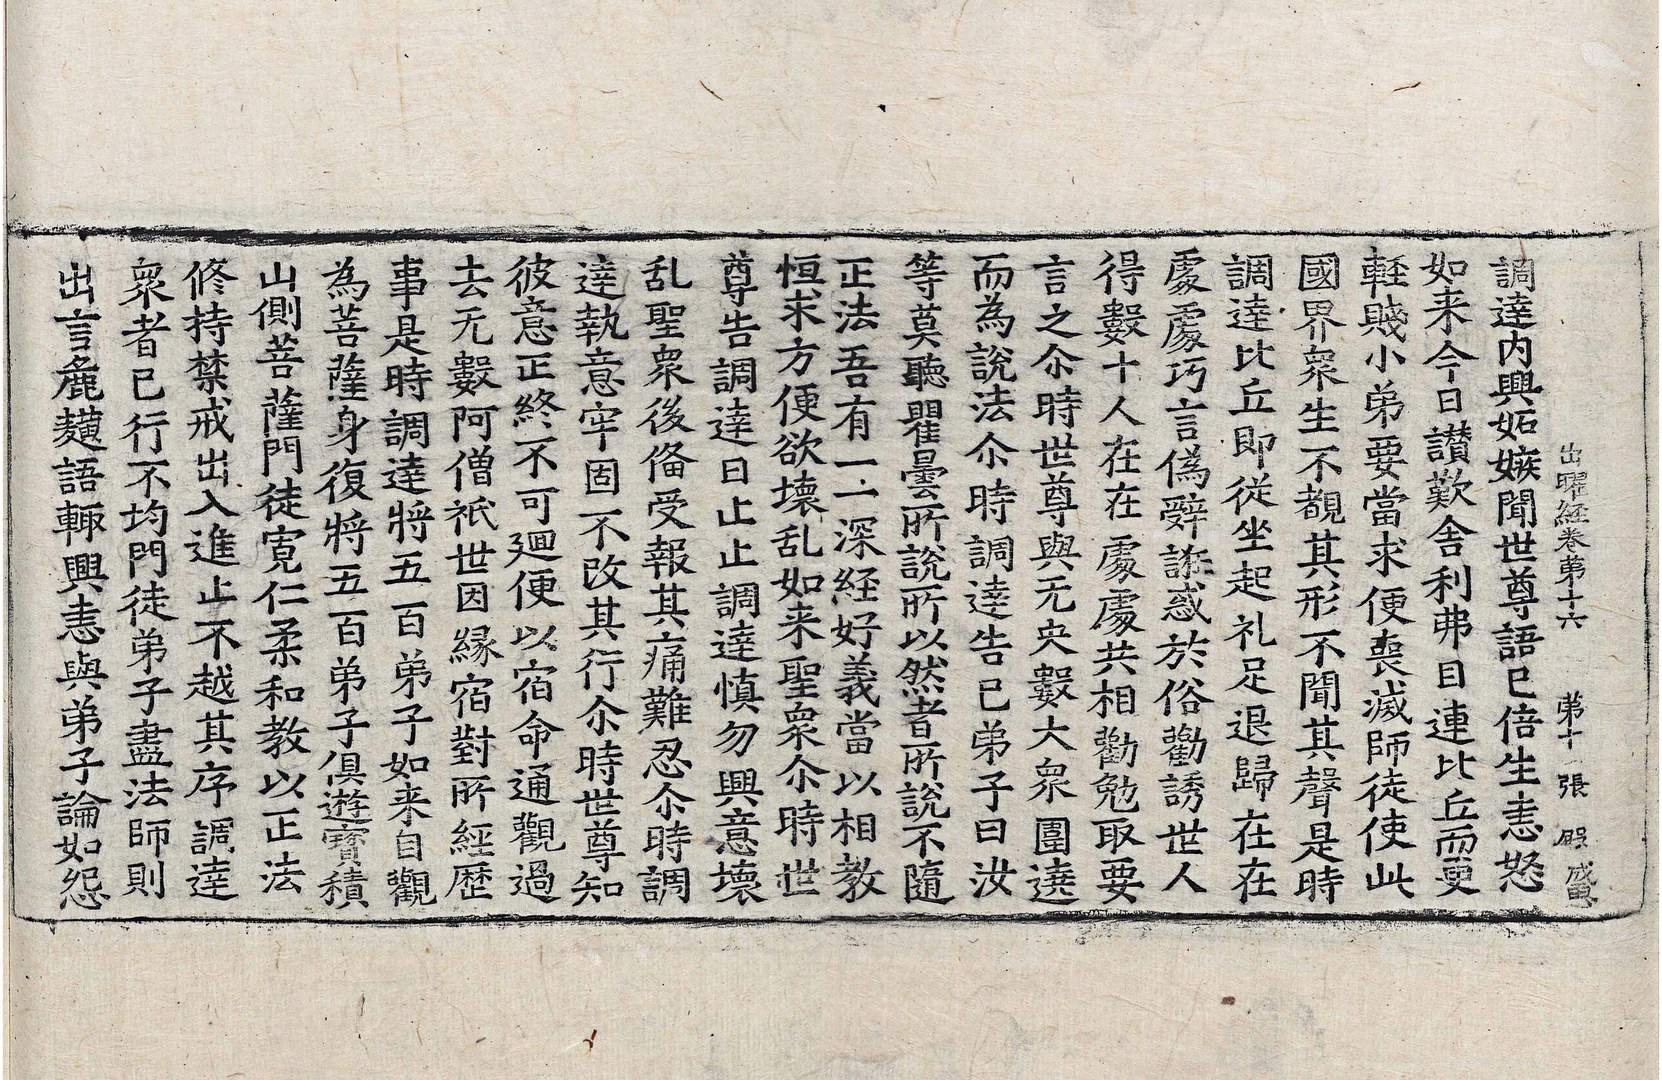 出曜経卷第十六 第十一張 殷 
調達内興妬嫉聞世尊語已倍生恚怒
如来今日讃歎舎利弗目連比丘而更
軽賤小弟要當求便喪滅師徒使此
國界衆生不覩其形不聞其聲是時
調達比丘即従坐起礼足退歸在在
處處巧言偽辝誑惑於俗勸誘世人
得數十人在在處處共相勸勉取要
言之尒時世尊與无央數大衆圍遶
而為說法尒時調達告已弟子曰汝
等莫聴瞿曇所說所以然者所說不隨
正法吾有一一深経好義當以相教
恒求方便欲壊乱如来聖衆尒時世
尊告調達曰止止調達慎勿興意壊
乱聖衆後俻受報其痛難忍尒時調
達執意牢固不改其行尒時世尊知
彼意正終不可廻便以宿命通觀過
去无數阿僧祇世因縁宿對所經歴
事是時調達將五百弟子如来自觀
為菩薩身復將五百弟子倶遊寶積
山側菩薩門徒寛仁柔和教以正法
修持禁戒出入進止不越其序調達
衆者已行不均門徒弟子盡法師則
出言麁䵃語輙興恚與弟子論如怨